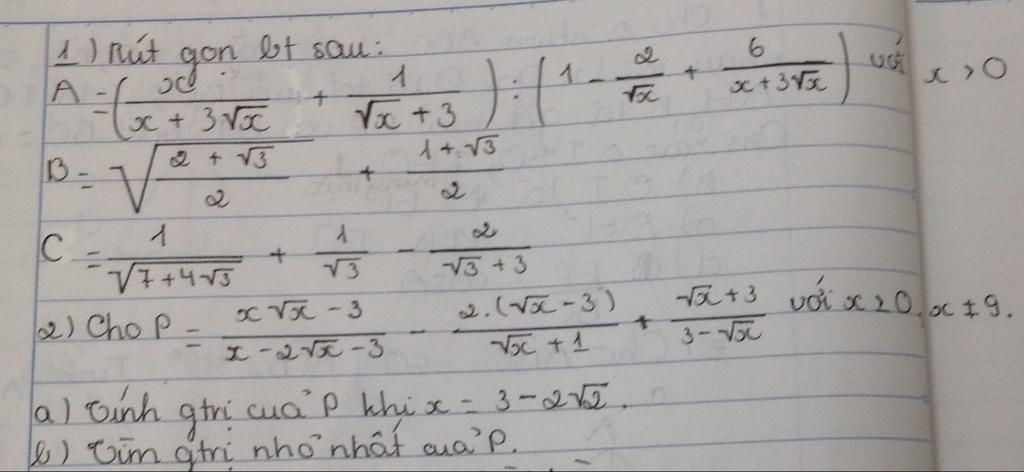 1) Rút gọn bt sau:
A = (x/(x + 3√x) + 1/(√x + 3)) : (1 - 2/√x + 6/(x + 3√x)) với x > 0
B = √((2 + √3)/2) + (1 + √3)/2
C = 1/√(7 + 4√3) + 1/√3 - 2/(√3 + 3)
2) Cho P = (x√x - 3)/(x - 2√x - 3) - 2.(√x - 3)/(√x + 1) + (√x + 3)/(3 - √x) với x ≥ 0, x ≠ 9.
a) Tính gtrị của P khi x = 3 - 2√2.
b) Tìm gtrị nhỏ nhất của P.